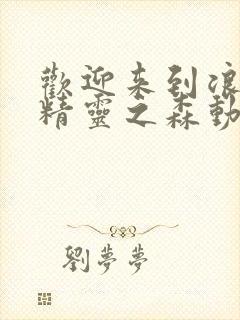 歡迎来到浪
精靈之森動
劉夢夢